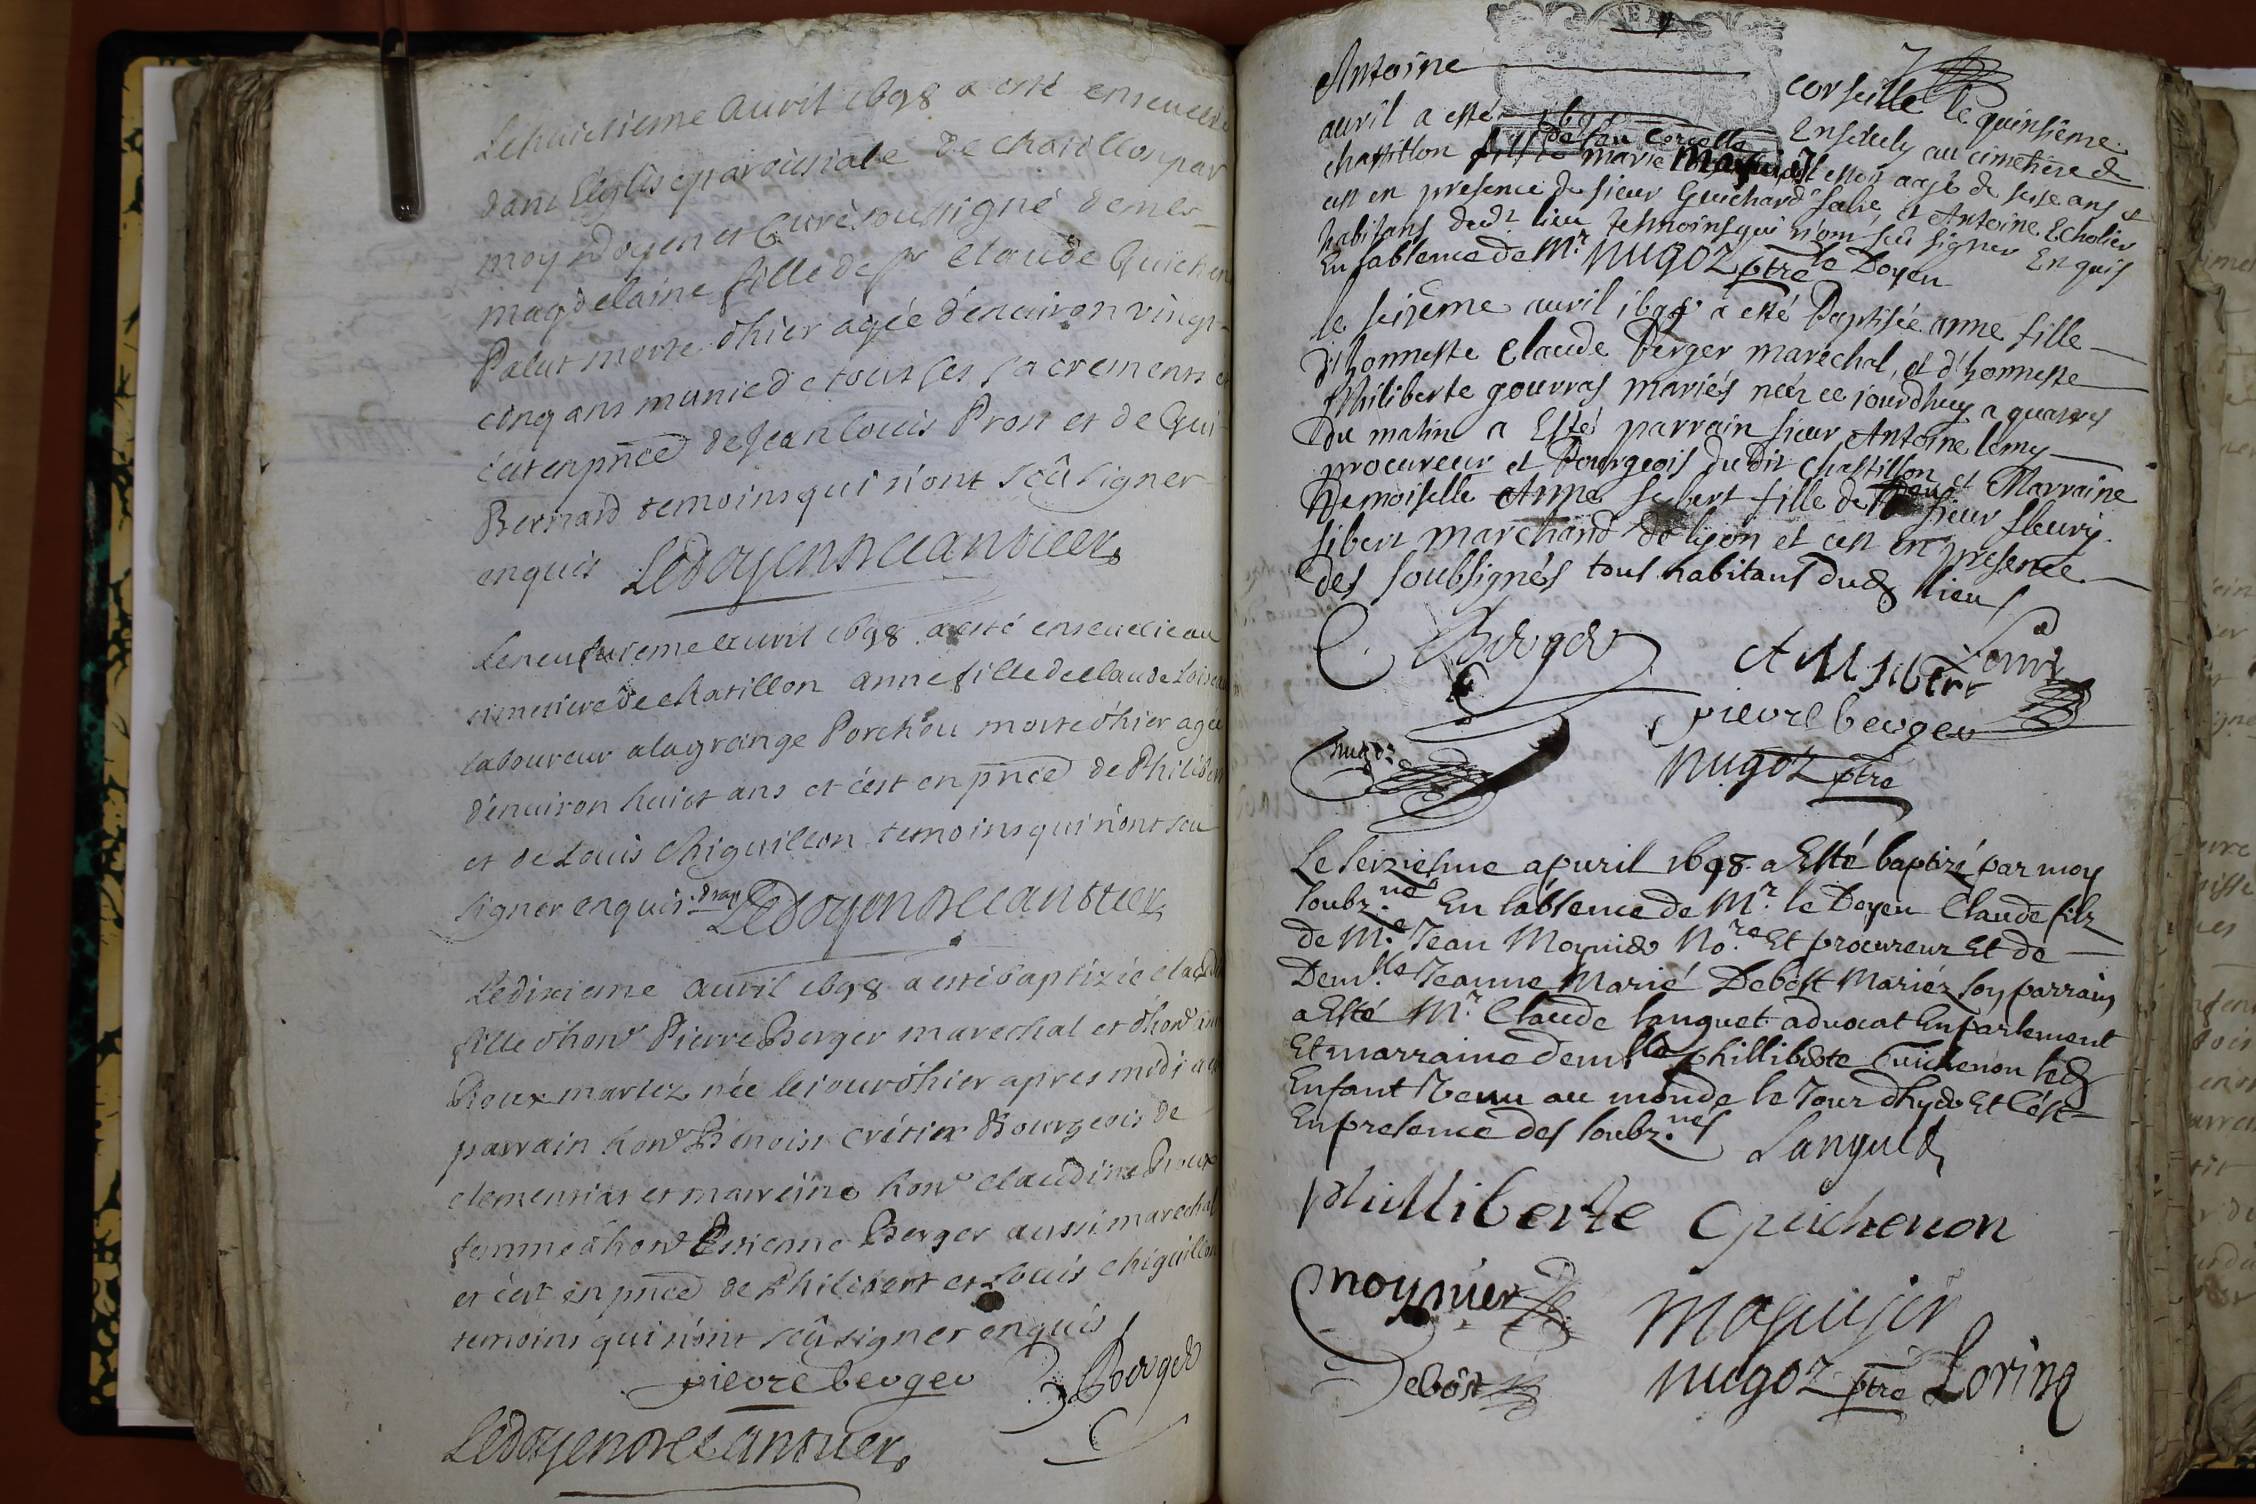 Le huictieme auril 1698 a esté enseuelie
dans l'eglise paroissiale de chatillon par
moy Doyen et Curé soussigné demle
magdelaine fille de sr Claude Guichen
Palut morte d'hier agée d'enuiron vingt
cinq ans munie de tous ses sacrements et
c'est en pnce de Jean Louis Prost et de Gui
Bernard temoins qui n'ont sçû signer
enquis Ledoyen
Le neufuieme auril 1698 a esté enseuelie au
cimetiere de chatillon anne fille de claude Loise
laboureur a la grange Porchou morte d'hier agée
d'enuiron huict ans et c'est en pnce de Philibert
et de Louis Chiguillon temoins qui n'ont sceu
signer enquis Ledoyen
Le dixieme auril 1698 a esté baptizée claud
fille d'hon Pierre Berger marechal et d'hon
Rioux mariez née le jour d'hier apres midi a esté
parrain hon Benoist Cretin Bourgeois de
clementiat et marreine hon claudine Rioux
femme d'hon Estienne Berger aussi marechal
et c'est en pnce de Philibert et Louis chiguillon
temoins qui n'ont sçû signer enquis
pierre berger Berger
Ledoyen
Antoine corseille le quinsième
auril a esté Enseuely au cimetière de
chastillon fils de feu Corcelle marie Il estoit aagé de seise ans et
c'est en presence de sieur Guichard et Antoine Echolier
habitans dudt lieu tesmoins qui n'ont sceu signer Enquis
En l'absence de Mr le Doyen NUGOZ ptre
le seizème auril 1698 a esté Baptisée anne fille
d'honneste Claude Berger marechal, et d'honneste
philiberte gouvras mariés néé ce jourdhuy a quattres
du matin a Esté parrain sieur Antoine lemy
procureur et Bourgeois du dit chastillon et Marraine
Demoiselle Anne sibert fille de sieur fleury
sibert marchand de lyon et c'est en presence
des soubsignés tous habitans dudt lieu
C. Berger A M sibert Lemy
pierre berger
nugoz NUGOZ ptre
Le seiziesme apuril 1698 a Esté baptizé par moy
soubz.né En l'absence de Mr. le Doyen Claude filz
de Me Jean Moynier No.re Et procureur Et de
Dem.lle Jeanne Marie Debost Mariéz son parrain
a Esté Mr. Claude languet advocat En parlement
Et marraine demlle philliberte Guichenon led
Enfant Venu au monde le Jour dhyer Et C'est
En presence des soubz.nés Languet
philliberte Guichenon
moynier
Debost NUGOZ ptre Lorin